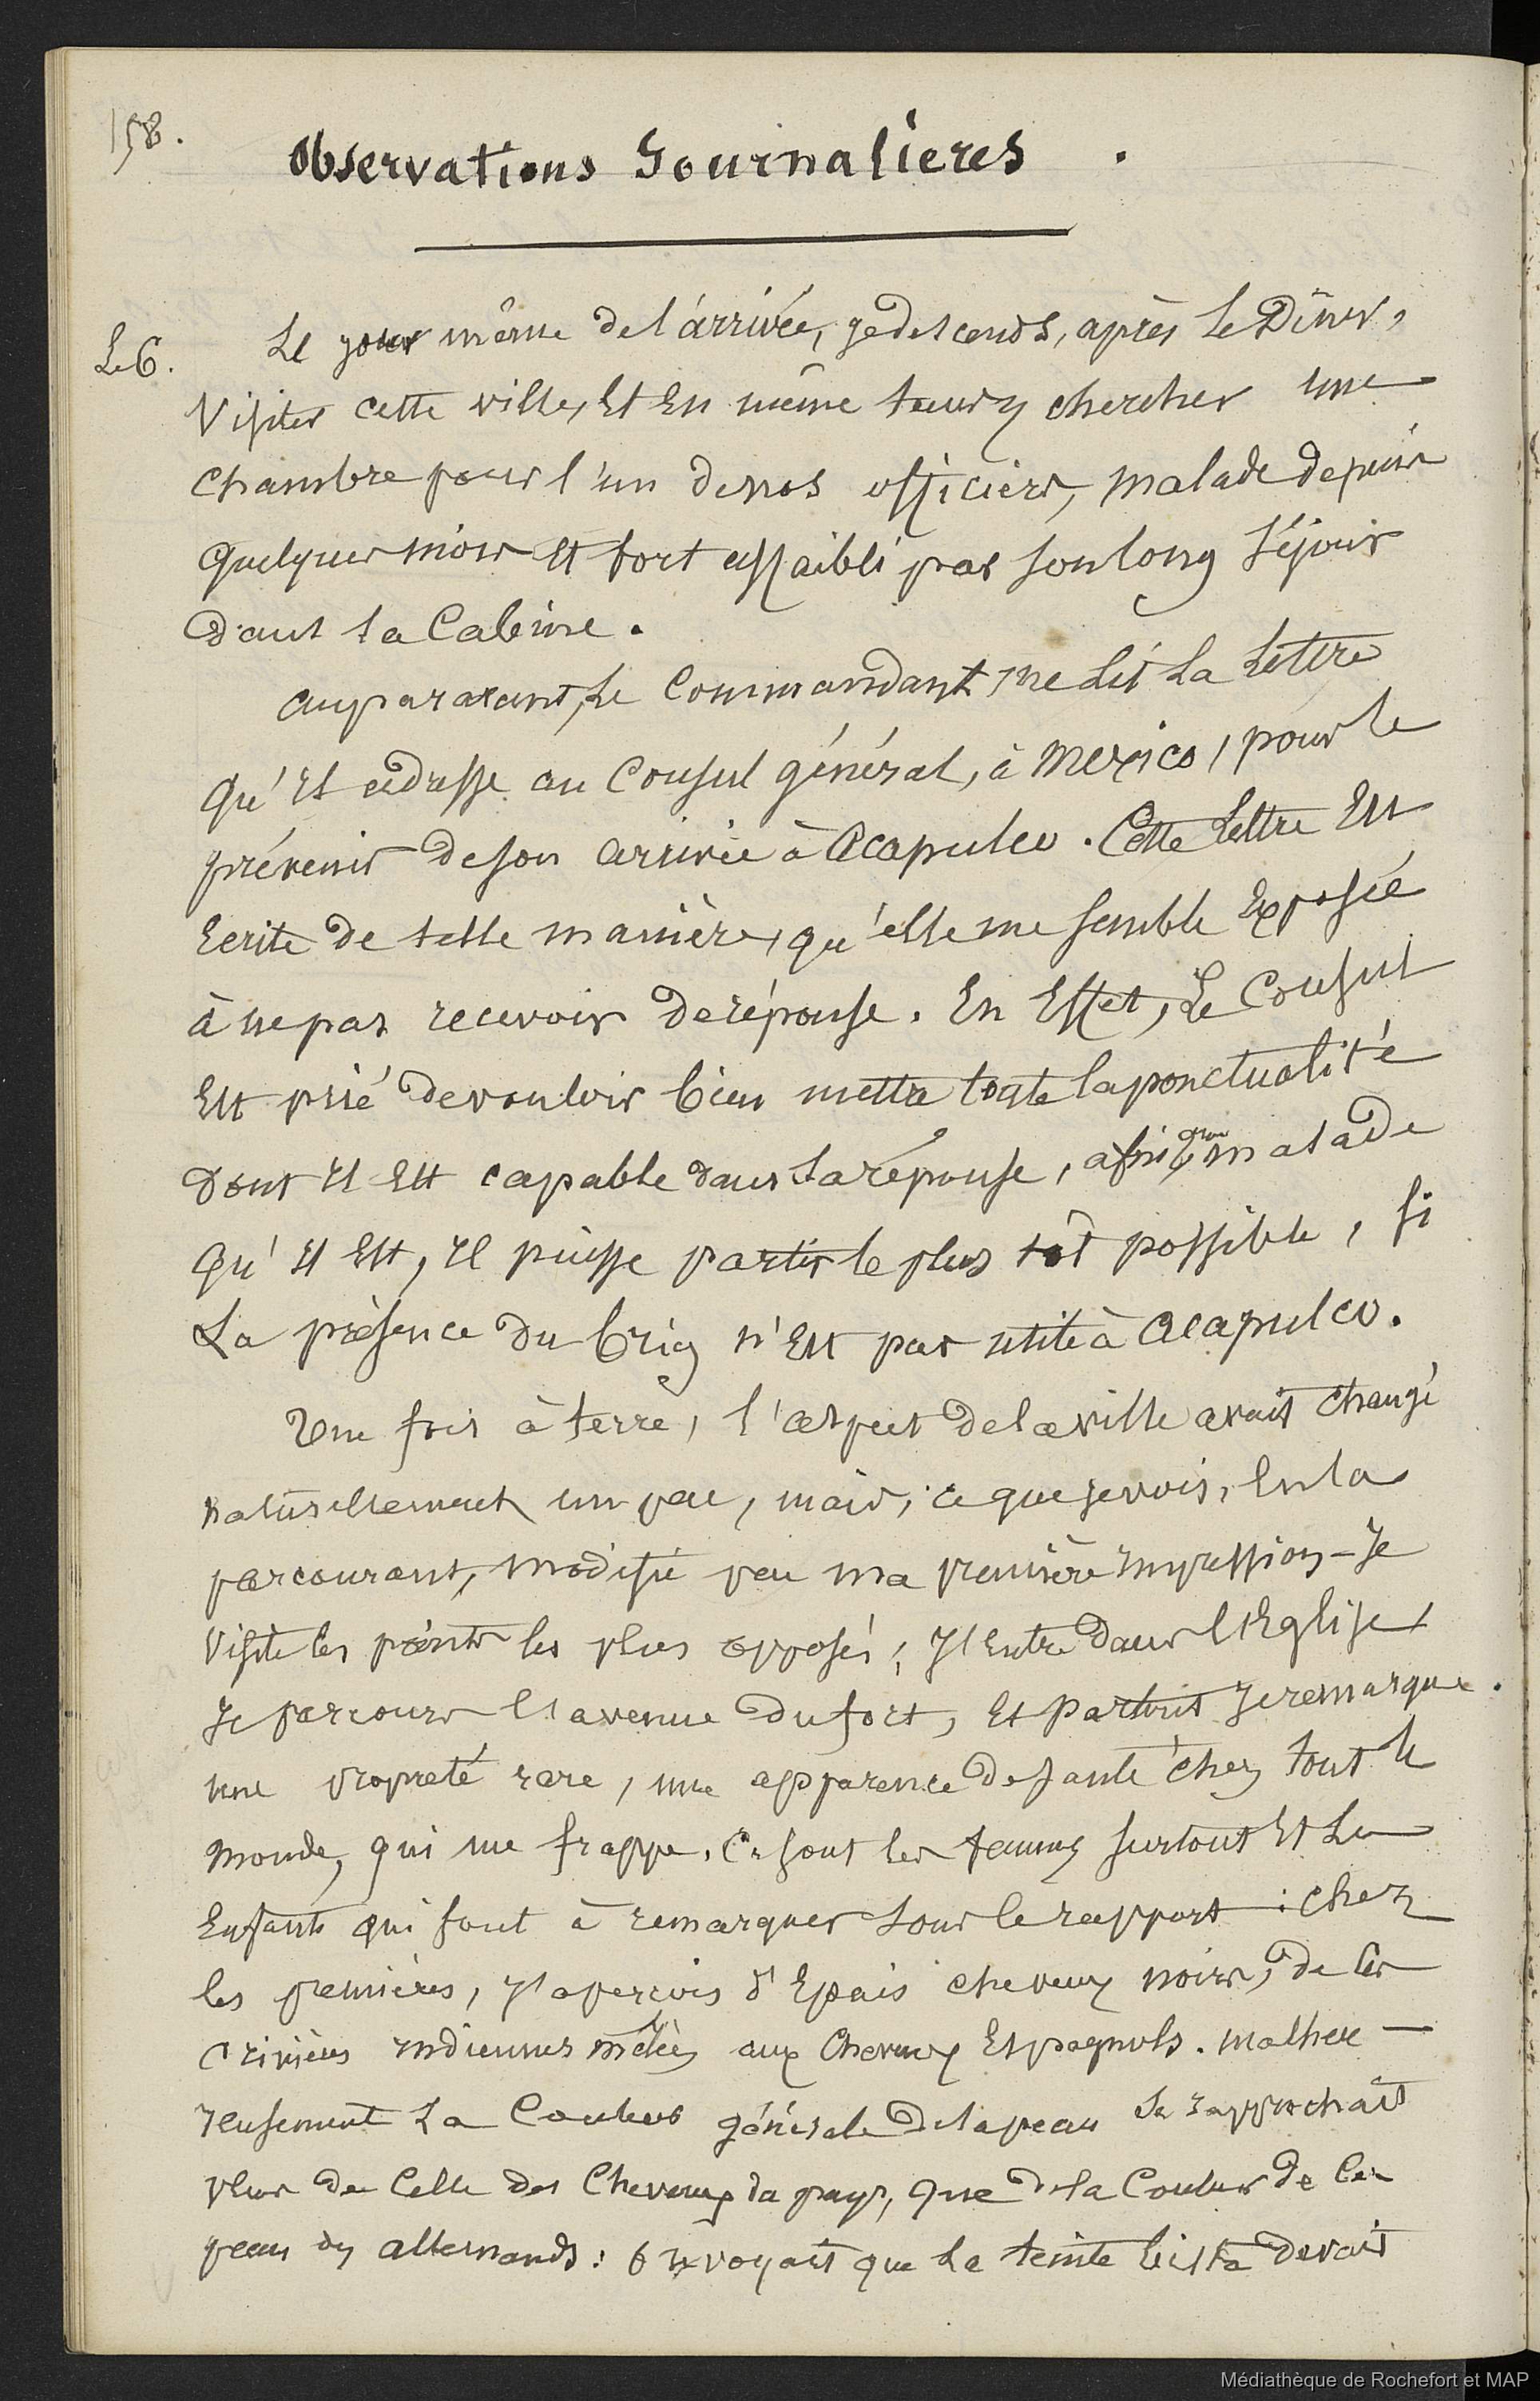 158.
Observations Journalieres .
Le 6.
Le jour même de l'arrivée, je descends, après le Dîner,
Visiter cette ville, Et En même temps chercher une
Chambre pour l'un de nos officiers, malade depuis
quelques mois Et fort affaibli par son long séjour
dans sa Cabine.
Auparavant, Le Commandant me lit La Lettre
qu'il adresse au Consul général, à Mexico, pour le
prévenir de son arrivée à Acapulco. Cette Lettre Est
Ecrite de telle manière, qu'elle me semble Exposée
à ne pas recevoir de réponse. En Effet, Le Consul
Est prié de vouloir bien mettre toute la ponctualité
dont il Est capable dans sa réponse, afin que malade
qu'il Est, il puisse partir le plus tôt possible, si
La présence du brig n'Est pas utile à Acapulco.
Une fois à terre, l'aspect de la ville avait changé
naturellement un peu, mais, ce que je vois, En la
parcourant, modifie peu ma première impression - Je
Visite les points les plus opposés, J'entre dans l'Eglise,
Je parcours l'avenue du fort, Et partout Je remarque
une propreté rare, une apparence de santé chez tout le
monde, qui me frappe. Ce sont les femmes surtout Et Les
Enfants qui sont à remarquer sous le rapport : chez
les premières, J'aperçois d'Epais cheveux noirs, de ces
crinières indiennes mêlées aux Cheveux Espagnols. malheu-
reusement La Couleur générale de la peau se rapprochait
plus de Celle des Cheveux du pays, que de la Couleur de la
peau des allemands : on voyait que la teinte bistre devait
Médiathèque de Rochefort et MAP